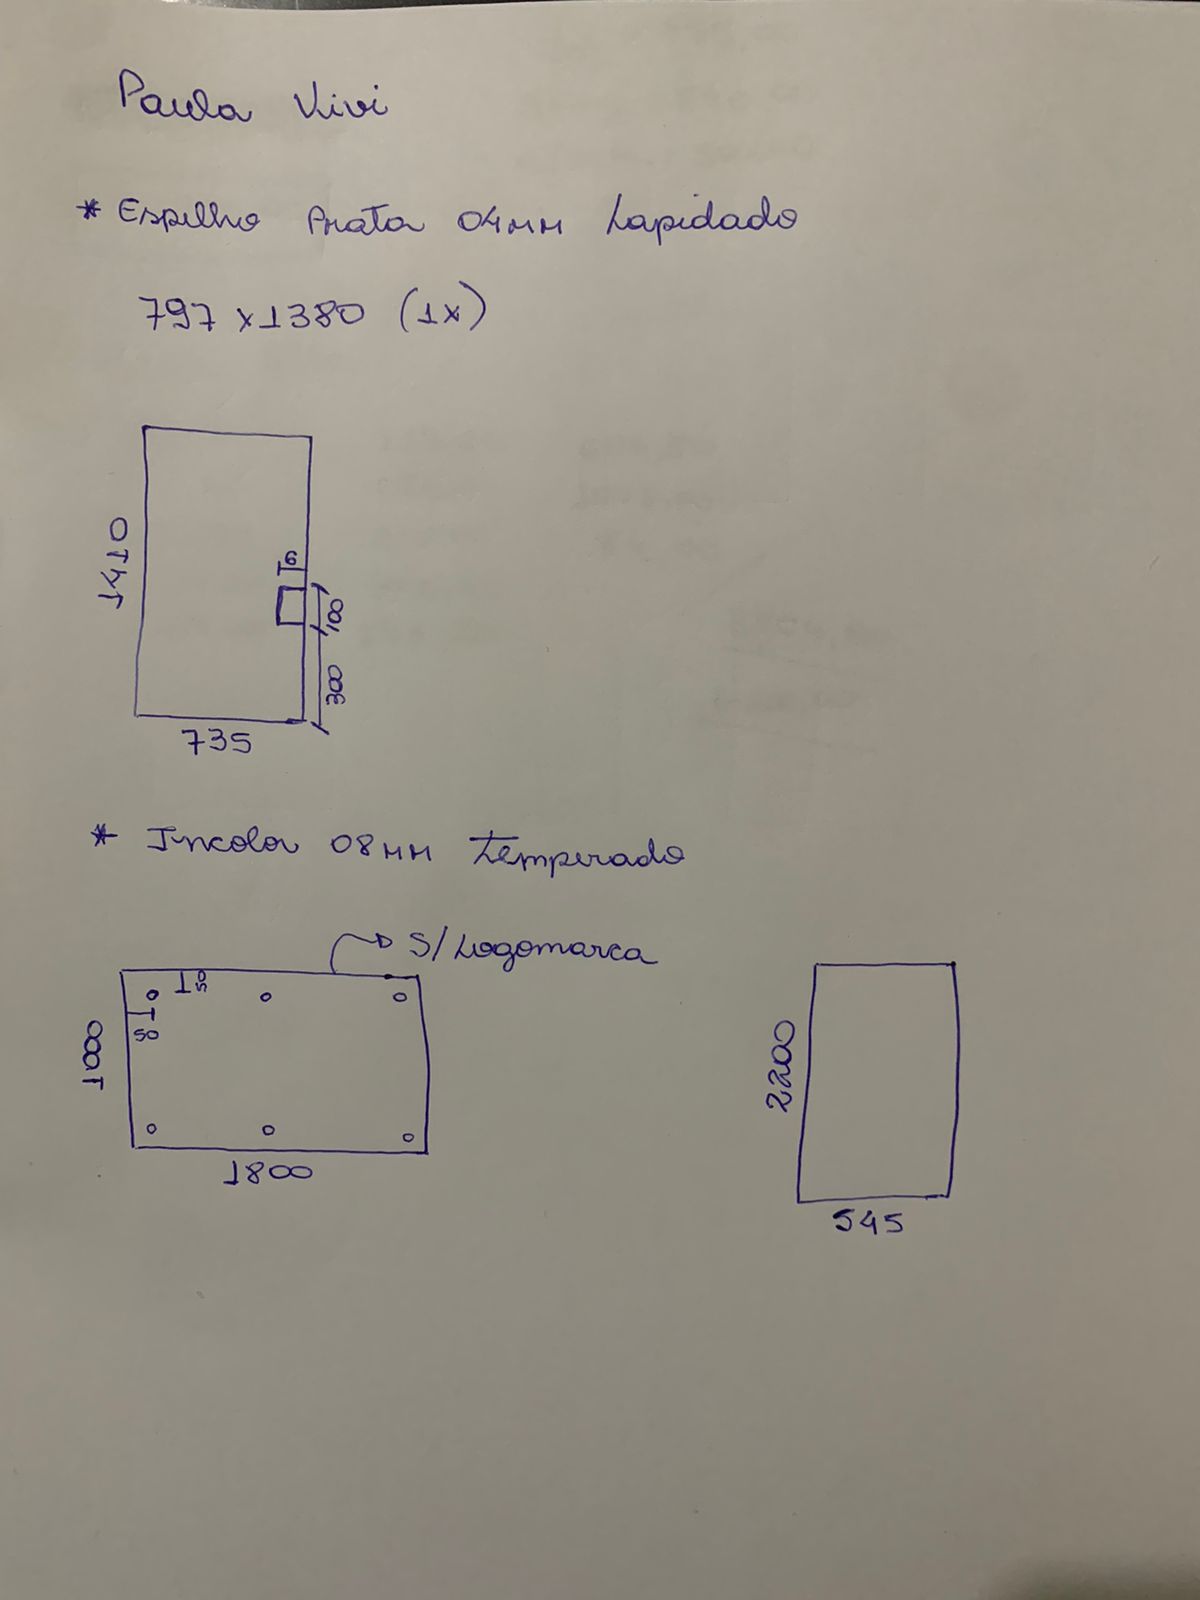 Paula Vivi
* Espelho Prata 04mm Lapidado
797 x 1380 (1x)
1410
6
100
300
735
* Incolor 08mm Temperado
S/ Logomarca
50
50
1000
1800
2200
545